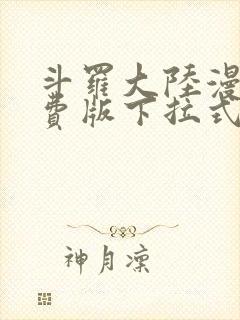 斗羅大陸漫
費版下拉式
神月凜